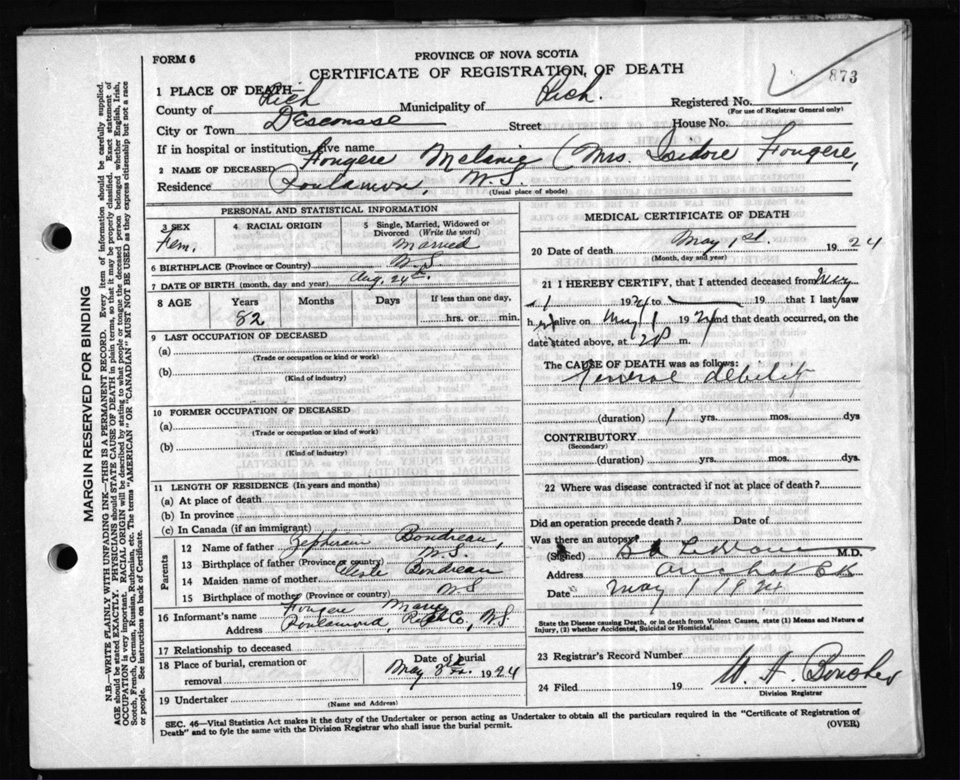 FORM 6
PROVINCE OF NOVA SCOTIA
CERTIFICATE OF REGISTRATION OF DEATH
873
1 PLACE OF DEATH—
County of Rich Municipality of Rich. Registered No.
(For use of Registrar General only)
City or Town D'Escousse Street House No.
If in hospital or institution, give name
2 NAME OF DECEASED Fougere Melanie (Mrs. Isidore Fougere,
Residence Poulamon, N.S.
(Usual place of abode)
PERSONAL AND STATISTICAL INFORMATION
3 SEX 4 RACIAL ORIGIN 5 Single, Married, Widowed or Divorced (Write the word)
Fem. Married
6 BIRTHPLACE (Province or Country) N.S.
7 DATE OF BIRTH (month, day and year) Aug. 24th
8 AGE Years Months Days If less than one day,
82 hrs. or min.
9 LAST OCCUPATION OF DECEASED
(a)
(Trade or occupation or kind or work)
(b)
(Kind of industry)
10 FORMER OCCUPATION OF DECEASED
(a)
(Trade or occupation or kind or work)
(b)
(Kind of industry)
11 LENGTH OF RESIDENCE (In years and months)
(a) At place of death
(b) In province
(c) In Canada (if an immigrant)
Parents
12 Name of father Boudreau,
13 Birthplace of father (Province or country) N.S.
14 Maiden name of mother Boudreau
15 Birthplace of mother (Province or country) N.S
16 Informant's name Fougere Marie
Address Poulamond, Rich Co., N.S.
17 Relationship to deceased
18 Place of burial, cremation or removal Date of burial
May 3rd 1924
19 Undertaker
(Name and Address)
MEDICAL CERTIFICATE OF DEATH
20 Date of death May 1st. 1924
(Month, day and year)
21 I HEREBY CERTIFY, that I attended deceased from May
1 1924 to 19 that I last saw
her alive on May 1 1924 and that death occurred, on the
date stated above, at m.
The CAUSE OF DEATH was as follows:
General debility
(duration) 1 yrs. mos. dys
CONTRIBUTORY
(Secondary)
(duration) yrs. mos. dys.
22 Where was disease contracted if not at place of death?
Did an operation precede death? Date of
Was there an autopsy?
(Signed) M.D.
Address Arichat C.B.
Date May 1 1924
State the Disease causing Death, or in death from Violent Causes, state (1) Means and Nature of
Injury, (2) whether Accidental, Suicidal or Homicidal.
23 Registrar's Record Number
24 Filed 19 W. A.
Division Registrar
SEC. 46—Vital Statistics Act makes it the duty of the Undertaker or person acting as Undertaker to obtain all the particulars required in the "Certificate of Registration of
Death" and to fyle the same with the Division Registrar who shall issue the burial permit.
(OVER)
MARGIN RESERVED FOR BINDING
N.B.—WRITE PLAINLY WITH UNFADING INK—THIS IS A PERMANENT RECORD. Every item of information should be carefully supplied.
AGE should be stated EXACTLY. PHYSICIANS should STATE CAUSE OF DEATH in plain terms, so that it may be properly classified. Exact statement of
OCCUPATION is very important. RACIAL ORIGIN will be described by stating to what people or tongue the deceased person belonged whether English, Irish,
Scotch, French, German, Russian, Ruthenian, etc. The terms "AMERICAN" OR "CANADIAN" MUST NOT BE USED as they express citizenship but not a race
or people. See instructions on back of Certificate.